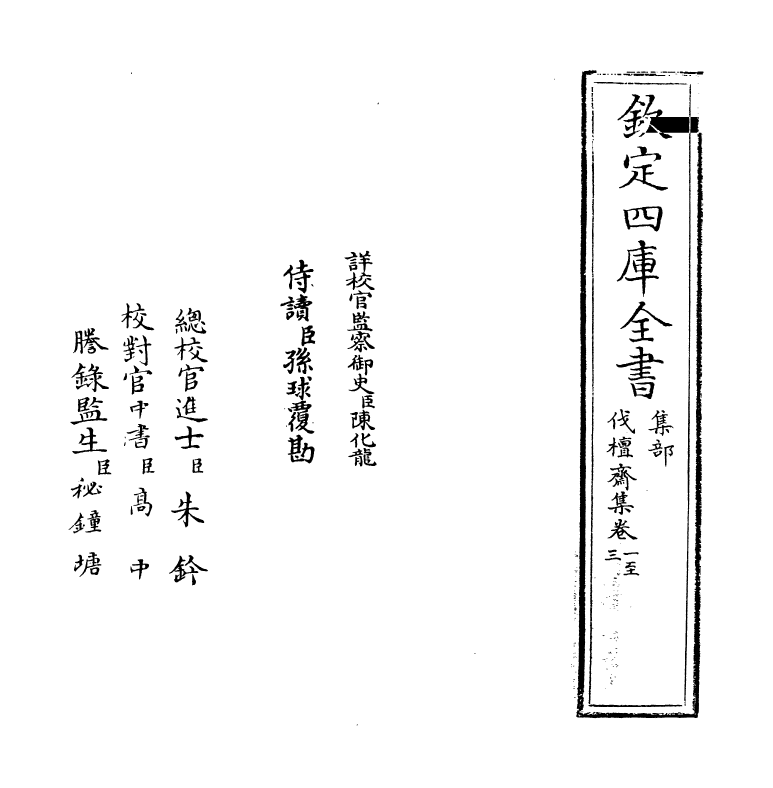 欽定四庫全書
集部
伐檀齋集卷一至三
詳校官監察御史臣陳化龍
侍讀臣孫球覆勘
總校官進士臣朱鈐
校對官中書臣高中
謄錄監生臣秘鐘塘